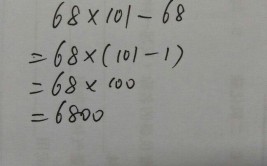 68×101-68
=68×(101-1)
=68×100
=6800